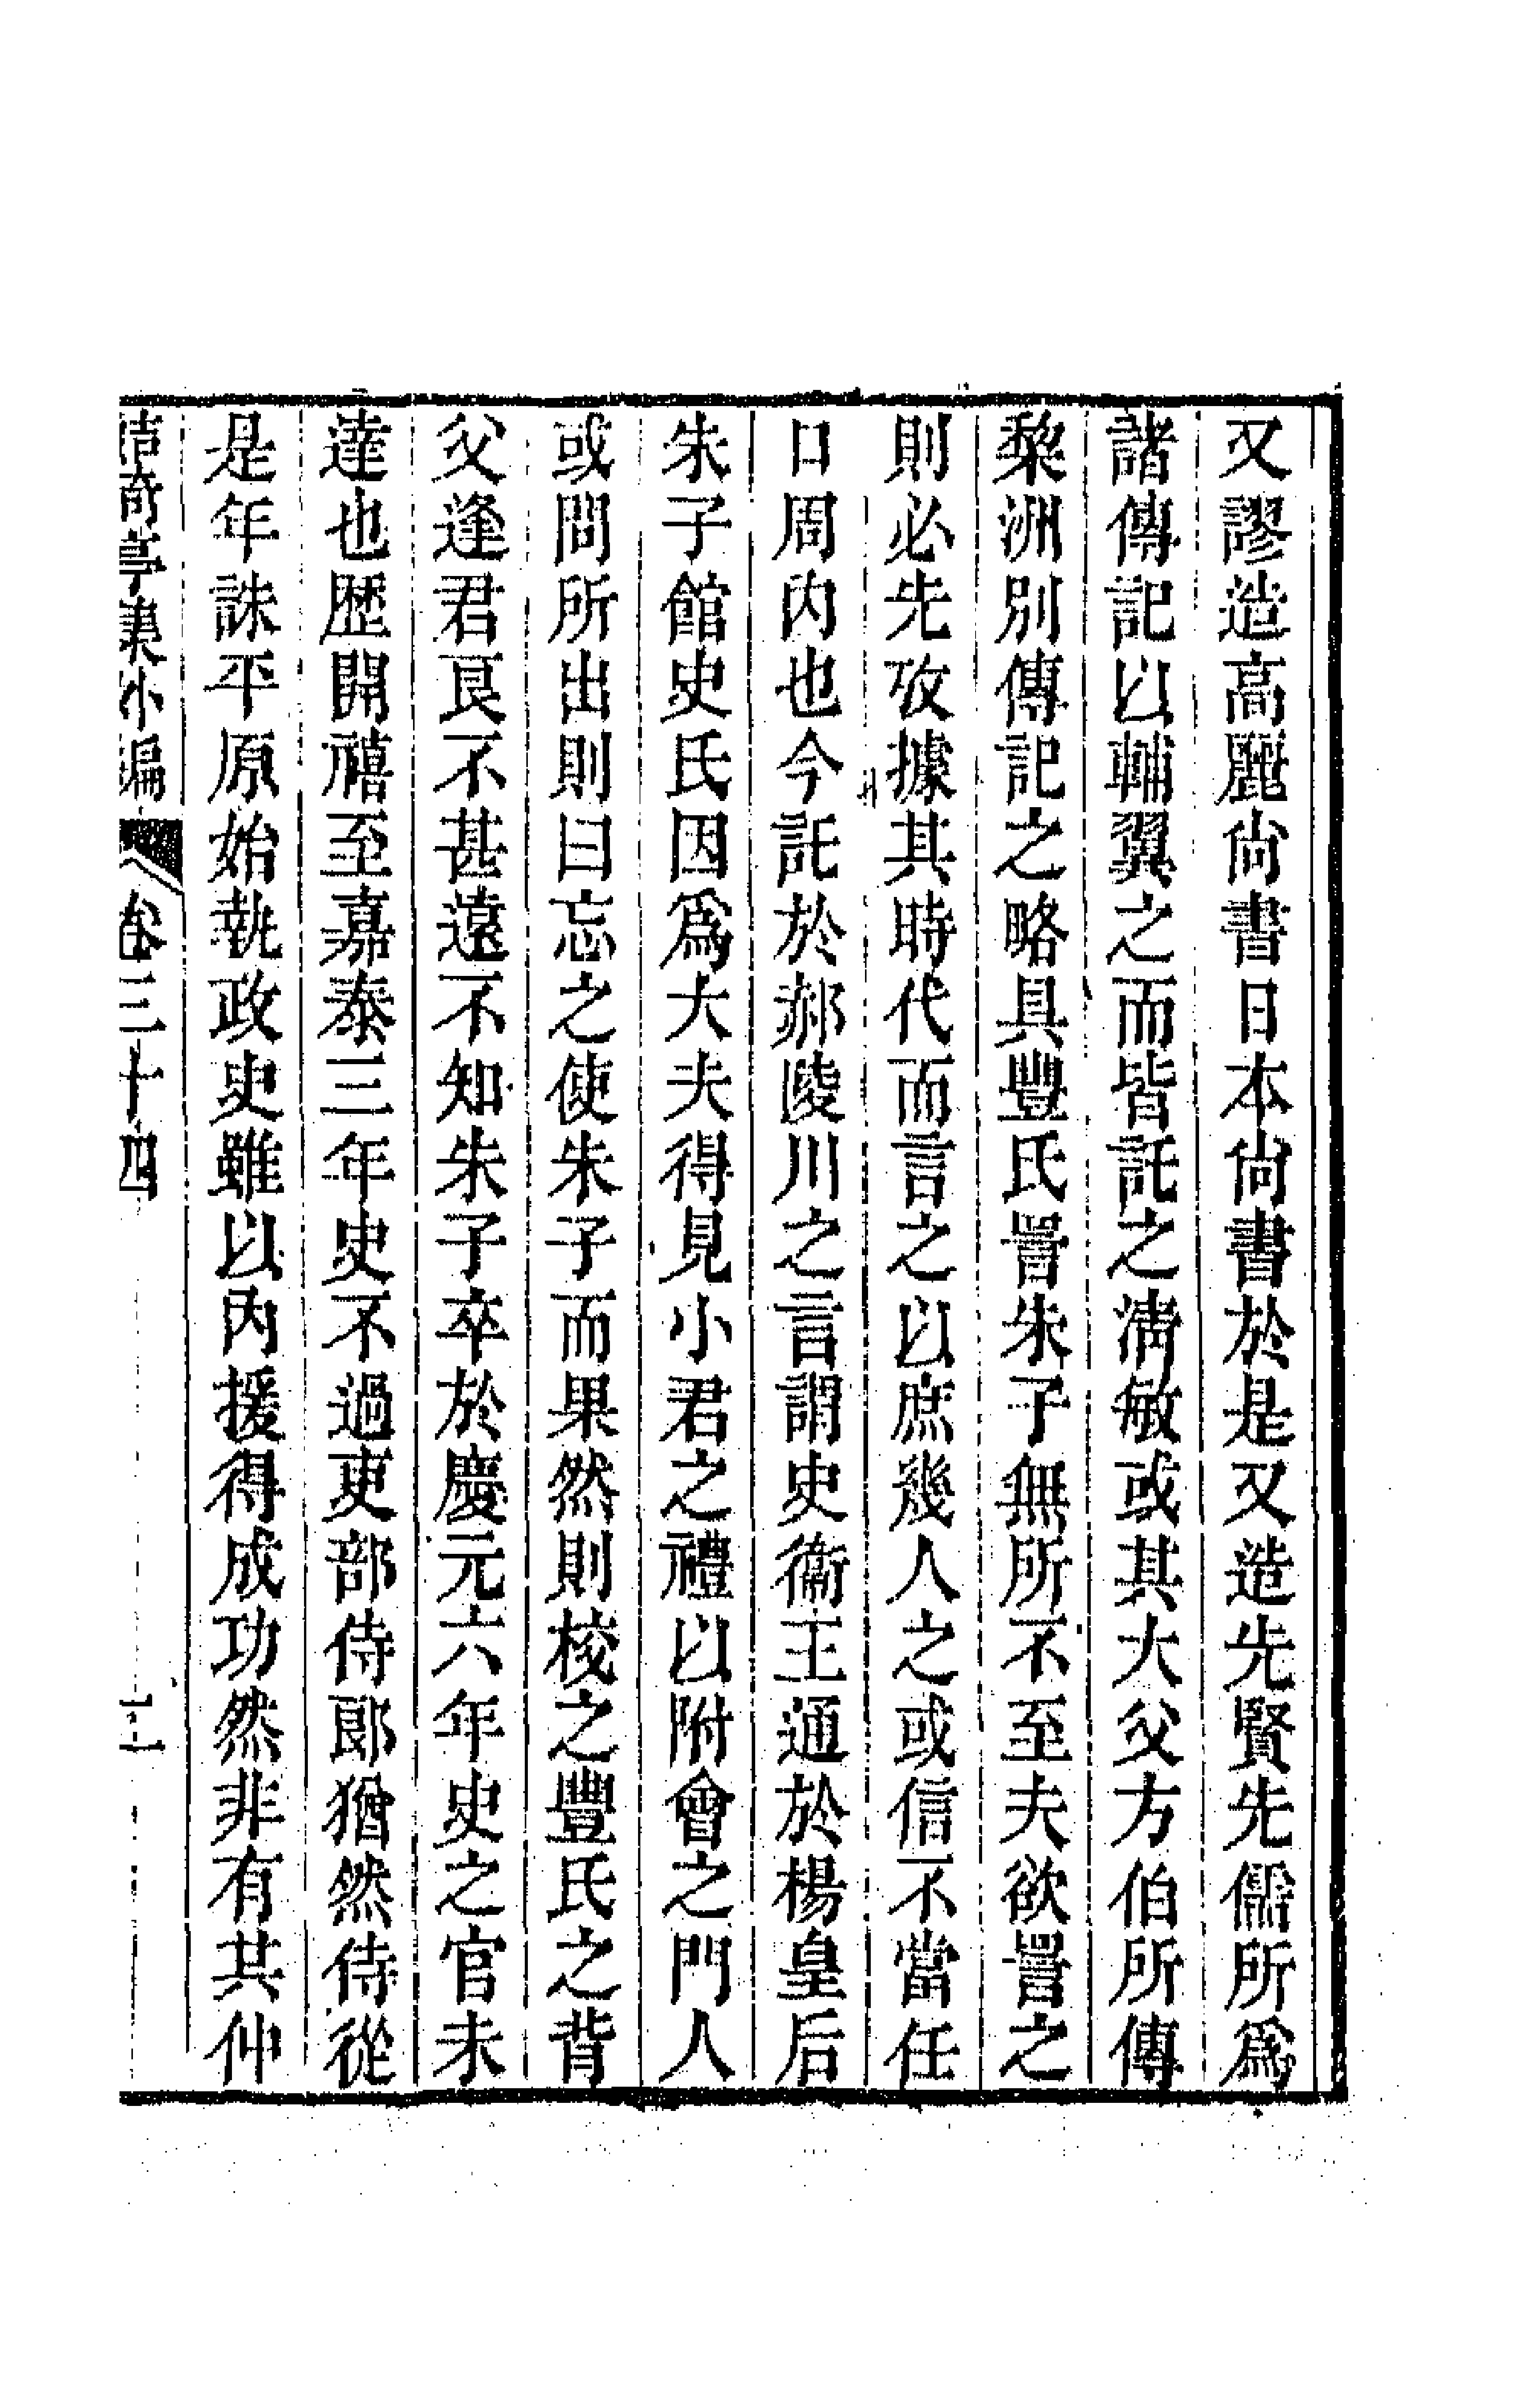 又謬造高麗尙書日本尙書於是又造先賢先儒所爲
諸傳記以輔翼之而皆託之淸敏或其大父方伯所傳
黎洲別傳記之略具豐氏詈朱子無所不至夫欲詈之
則必先攷據其時代而言之以庶幾人之或信不當任
口周內也今託於郝陵川之言謂史衞王通於楊皇后
朱子館史氏因爲大夫得見小君之禮以附會之門人
或問所出則曰忘之使朱子而果然則校之豐氏之背
父逢君艮不甚遠不知朱子卒於慶元六年史之官未
達也歷開禧至嘉泰三年史不過吏部侍郞猶然侍從
是年誅平原始執政史雖以內援得成功然非有其仲
鮚埼亭集外編 卷三十四 二